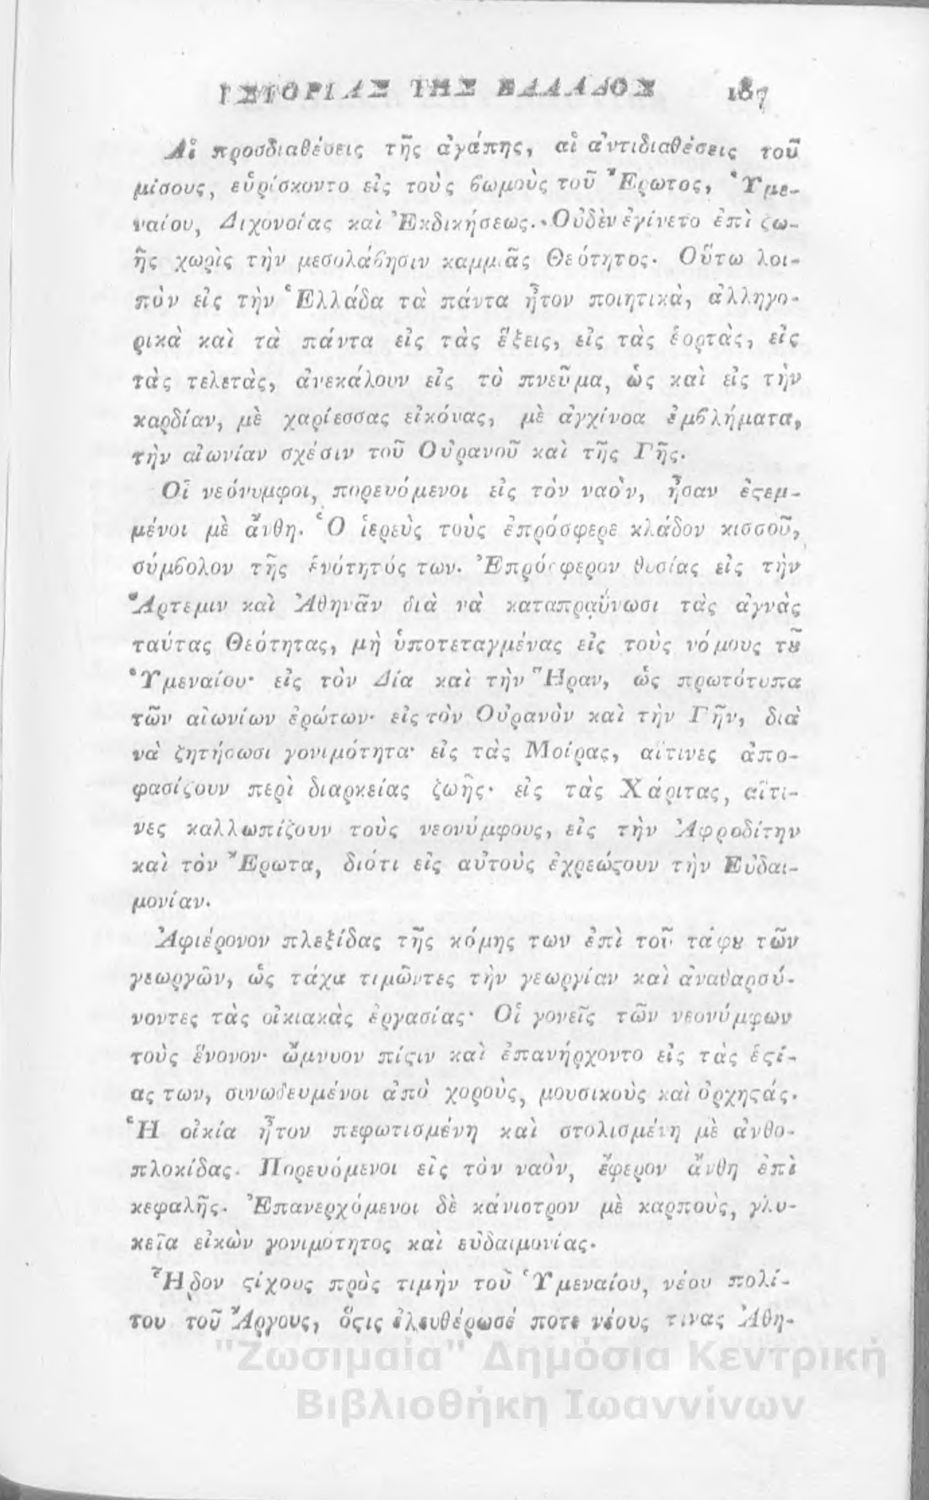 ΙΣΤΟΡΙΑΣ ΤΗΣ ΕΛΛΑΔΟΣ 187
Αἱ προσδιαθέσεις τῆς ἀγάπης, αἱ ἀντιδιαθέσεις τοῦ
μίσους, εὑρίσκοντο εἰς τοὺς ϐωμοὺς τοῦ Ἔρωτος, Ὑμε-
ναίου, Διχονοίας καὶ Ἐκδικήσεως. Οὐδὲν ἐγίνετο ἐπὶ ζω-
ῆς χωρὶς τὴν μεσολάϐησιν καμμιᾶς Θεότητος· Οὕτω λοι-
πὸν εἰς τὴν Ἑλλάδα τὰ πάντα ἦτον ποιητικὰ, ἀλληγο-
ρικὰ καὶ τὰ πάντα εἰς τὰς ἕξεις, εἰς τὰς ἑορτὰς, εἰς
τὰς τελετὰς, ἀνεκάλουν εἰς τὸ πνεῦμα, ὡς καὶ εἰς τὴν
καρδίαν, μὲ χαρίεσσας εἰκόνας, μὲ ἀγχίνοα ἐμϐλήματα,
τὴν αἰωνίαν σχέσιν τοῦ Οὐρανοῦ καὶ τῆς Γῆς.
Οἱ νεόνυμφοι, πορευόμενοι εἰς τὸν ναὸν, ἦσαν ἐςεμ-
μένοι μὲ ἄνθη. Ὁ ἱερεὺς τοὺς ἐπρόσφερε κλάδον κισσοῦ,
σύμϐολον τῆς ἑνότητός των. Ἐπρόσφερον θυσίας εἰς τὴν
Ἄρτεμιν καὶ Ἀθηνᾶν διὰ νὰ καταπραΰνωσι τὰς ἁγνὰς
ταύτας Θεότητας, μὴ ὑποτεταγμένας εἰς τοὺς νόμους τȣ͂
Ὑμεναίου· εἰς τὸν Δία καὶ τὴν Ἥραν, ὡς πρωτότυπα
τῶν αἰωνίων ἐρώτων· εἰς τὸν Οὐρανὸν καὶ τὴν Γῆν, διὰ
νὰ ζητήσωσι γονιμότητα· εἰς τὰς Μοίρας, αἵτινες ἀπο-
φασίζουν περὶ διαρκείας ζωῆς· εἰς τὰς Χάριτας, αἵτι-
νες καλλωπίζουν τοὺς νεονύμφους, εἰς τὴν Ἀφροδίτην
καὶ τὸν Ἔρωτα, διότι εἰς αὐτοὺς ἐχρεώςουν τὴν Εὐδαι-
μονίαν.
Ἀφιέρονον πλεξίδας τῆς κόμης των ἐπὶ τοῦ τάφȣ τῶν
γεωργῶν, ὡς τάχα τιμῶντες τὴν γεωργίαν καὶ ἀναθαρσύ-
νοντες τὰς οἰκιακὰς ἐργασίας· Οἱ γονεῖς τῶν νεονύμφων
τοὺς ἕνονον· ὤμνυον πίςιν καὶ ἐπανήρχοντο εἰς τὰς ἑςί-
ας των, συνωδευμένοι ἀπὸ χοροὺς, μουσικοὺς καὶ ὀρχηςάς.
Ἡ οἰκία ἦτον πεφωτισμένη καὶ στολισμένη μὲ ἀνθο-
πλοκίδας. Πορευόμενοι εἰς τὸν ναὸν, ἔφερον ἄνθη ἐπὶ
κεφαλῆς. Ἐπανερχόμενοι δὲ κάνιστρον μὲ καρποὺς, γλυ-
κεῖα εἰκὼν γονιμότητος καὶ εὐδαιμονίας.
Ἦδον ςίχους πρὸς τιμὴν τοῦ Ὑμεναίου, νέου πολί-
του τοῦ Ἄργους, ὅςις ἐλευθέρωσέ ποτε νέους τινας Ἀθη-
"Ζωσιμαία" Δημόσια Κεντρική
Βιβλιοθήκη Ιωαννίνων